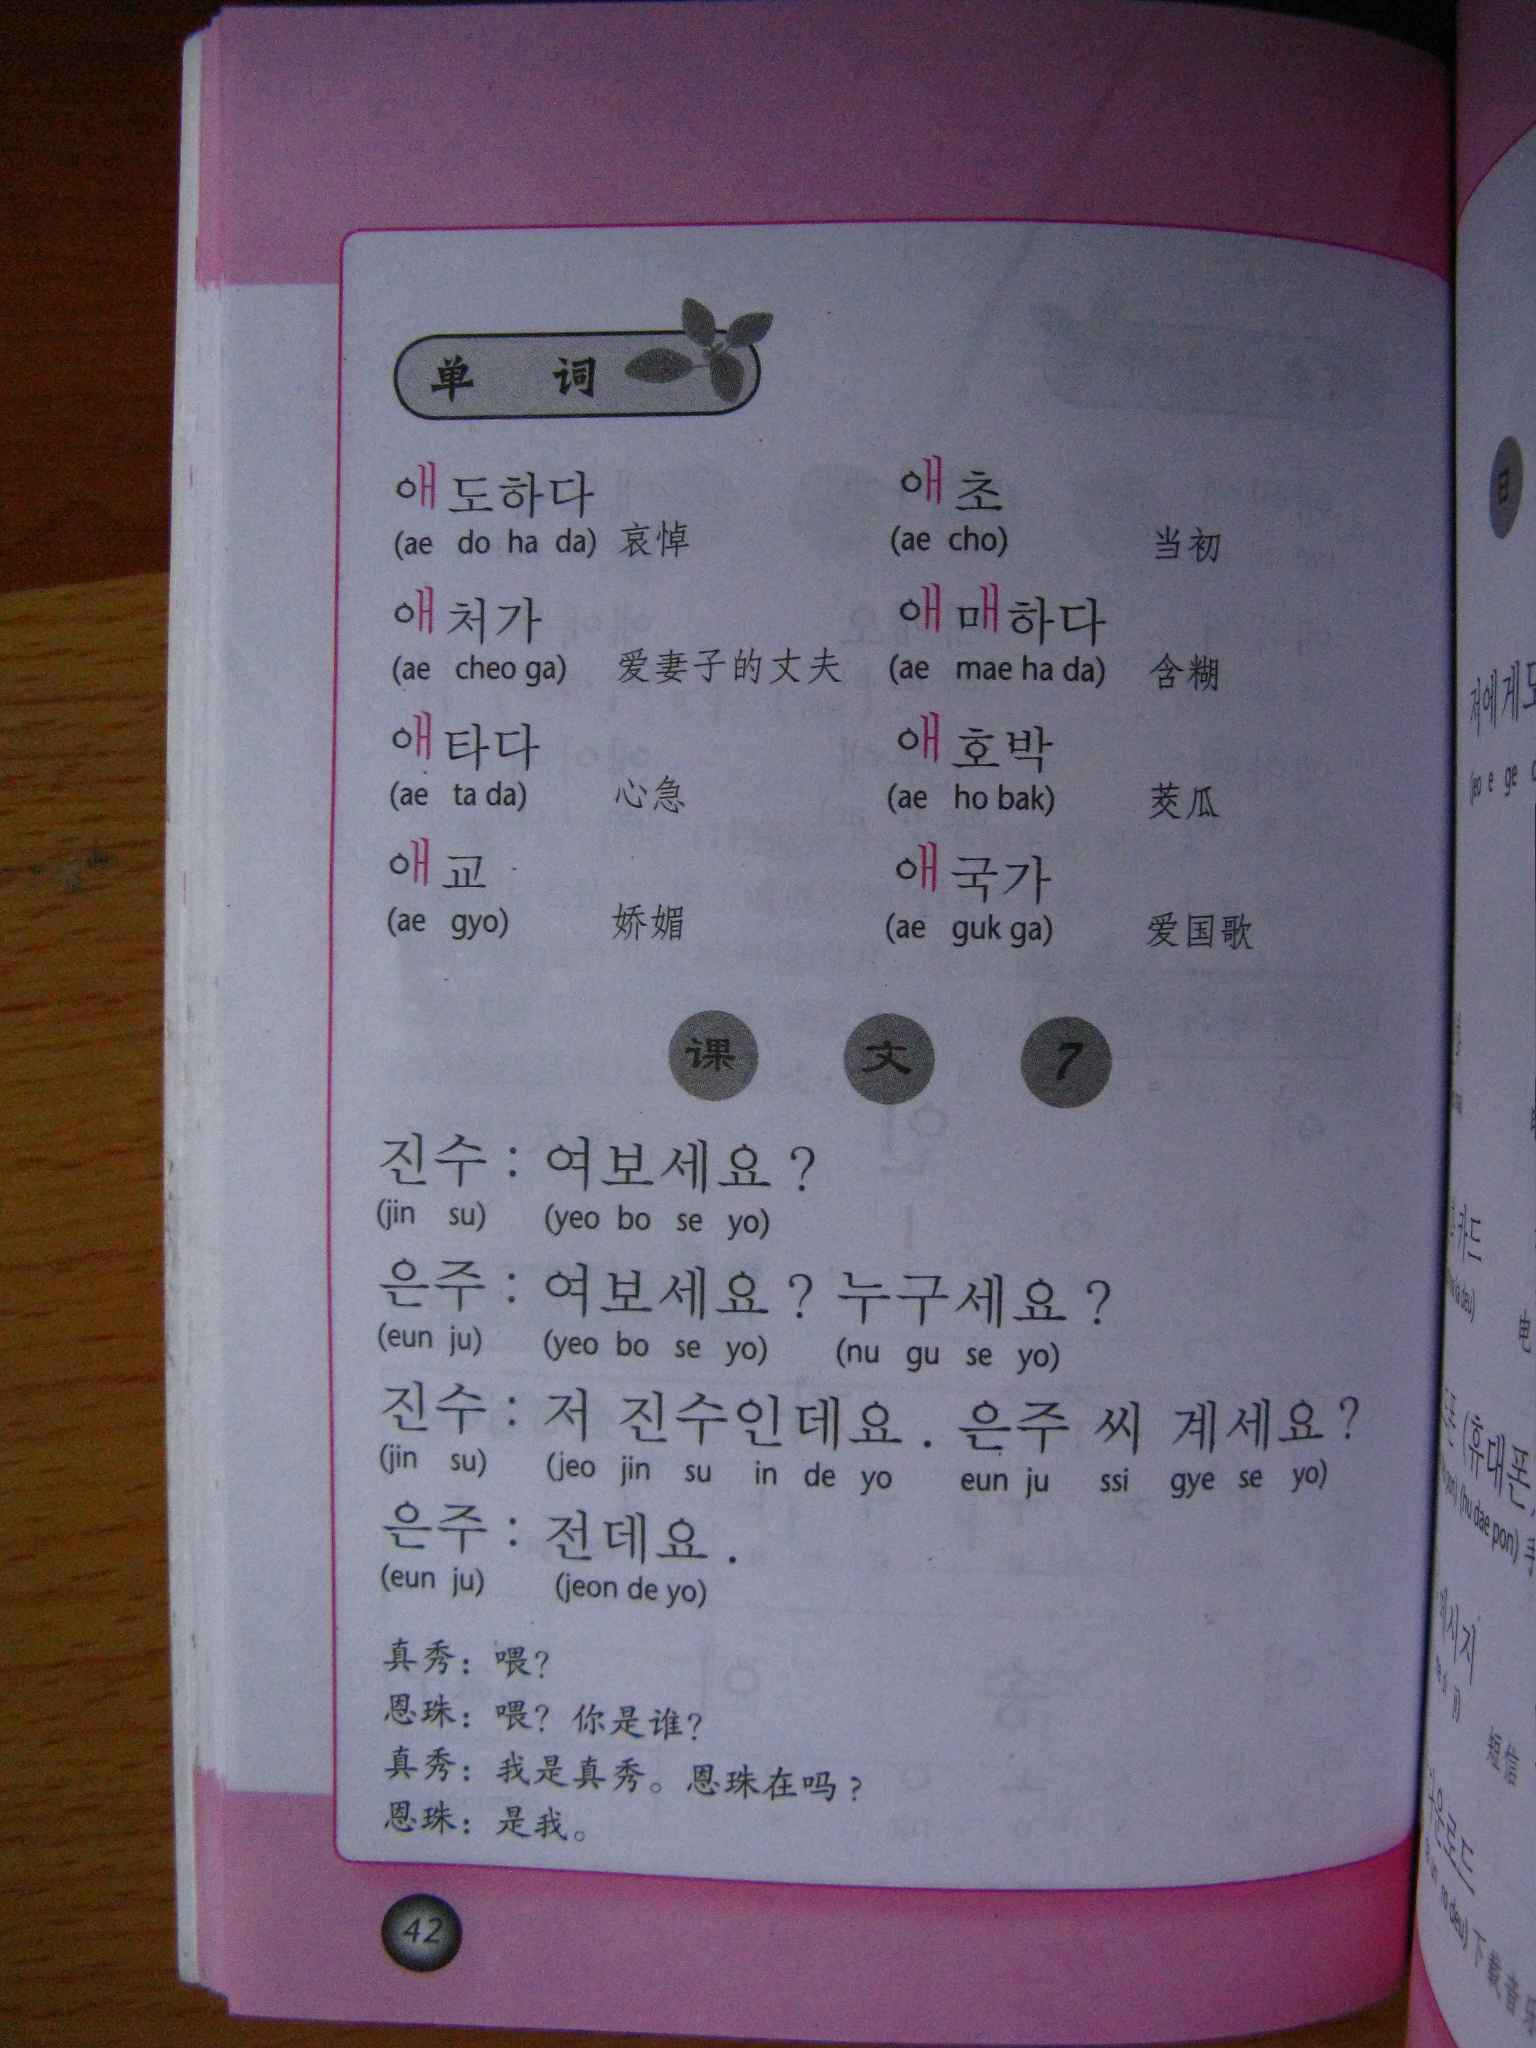 单 词
애도하다 애초
(ae do ha da) 哀悼 (ae cho) 当初
애처가 애매하다
(ae cheo ga) 爱妻子的丈夫 (ae mae ha da) 含糊
애타다 애호박
(ae ta da) 心急 (ae ho bak) 茭瓜
애교 애국가
(ae gyo) 娇媚 (ae guk ga) 爱国歌
课 文 7
진수: 여보세요?
(jin su) (yeo bo se yo)
은주: 여보세요? 누구세요?
(eun ju) (yeo bo se yo) (nu gu se yo)
진수: 저 진수인데요. 은주 씨 계세요?
(jin su) (jeo jin su in de yo eun ju ssi gye se yo)
은주: 전데요.
(eun ju) (jeon de yo)
真秀: 喂?
恩珠: 喂? 你是谁?
真秀: 我是真秀。恩珠在吗?
恩珠: 是我。
42
日
저에게
(jeo e ge
카드
电
(휴대폰,
(hu dae pon) 手
短信
下载